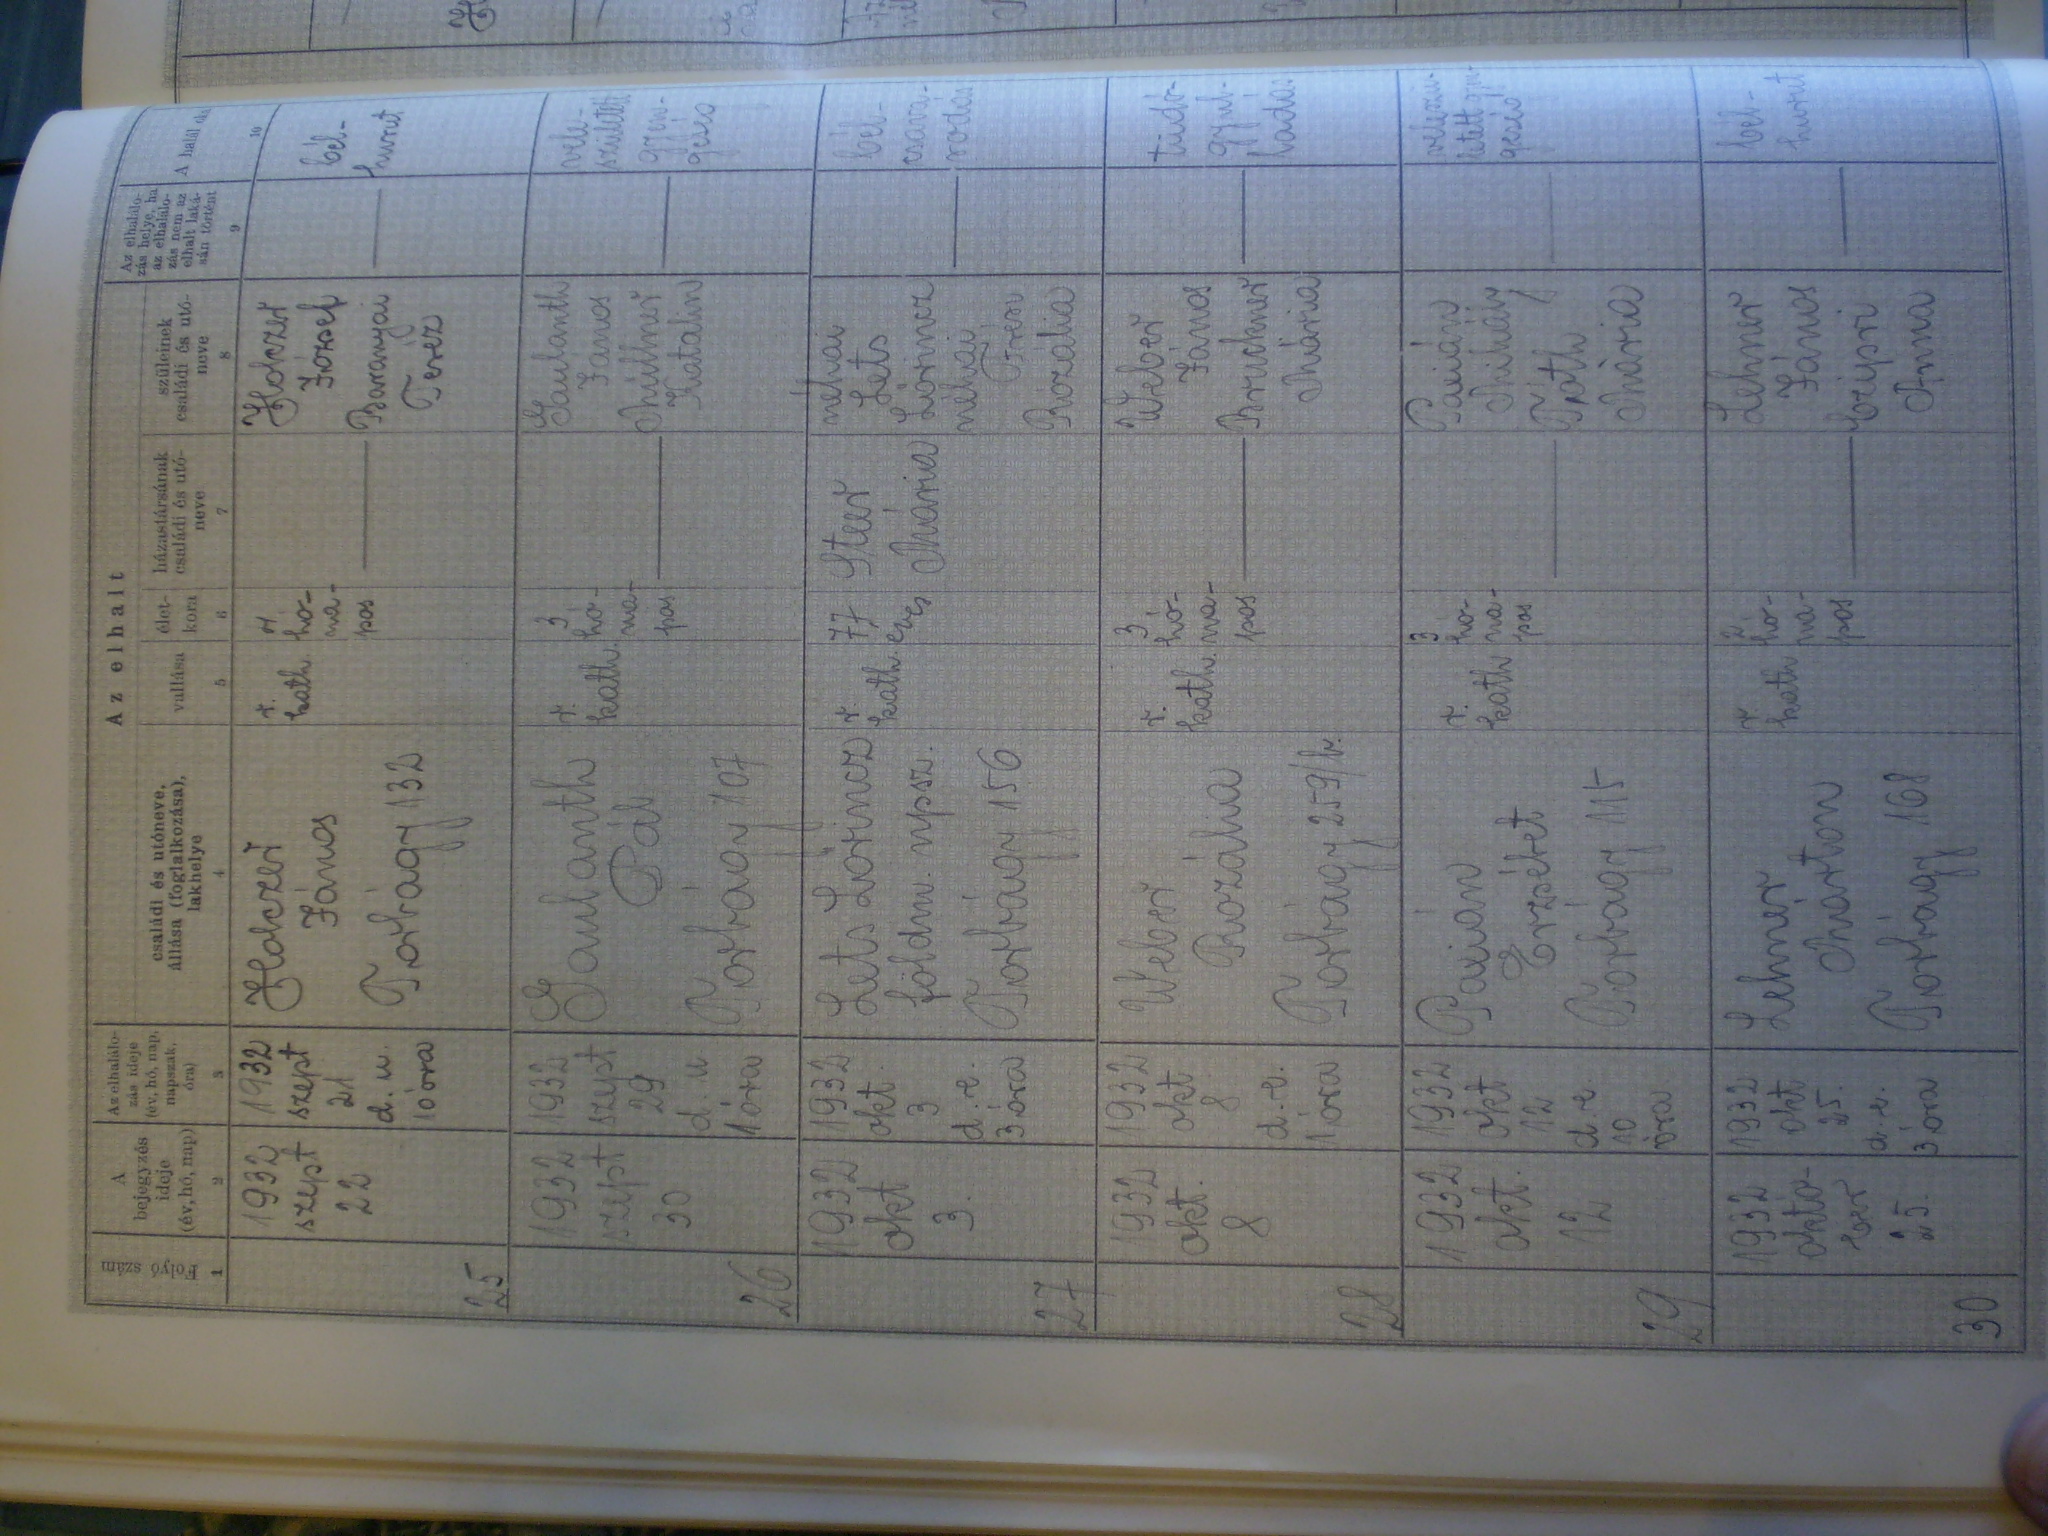 Az elhalt
Folyó szám
A bejegyzés ideje (év, hó, nap)
Az elhalálo-
zás ideje
(év, hó, nap,
napszak,
óra)
családi és utóneve,
állása (foglalkozása),
lakhelye
vallása
élet-
kora
házastársának
családi és utó-
neve
szüleinek
családi és utó-
neve
Az elhalálo-
zás helye, ha
az elhalálo-
zás nem az
elhalt laká-
sán történt
A halál oka
1
2
3
4
5
6
7
8
9
10
25
1932
szept
22
1932
szept
21
d. u.
10 óra
Holczer
János
Torbágy 132
r.
kath.
4
hó-
na-
pos
Holczer
József
Baranyai
Teréz
bél-
hurut
26
1932
szept
30
1932
szept
29
d. u
1 óra
Gaulanth
Pál
Torbágy 107
r.
kath.
3
hó-
na-
pos
Gaulanth
János
Mühner
Katalin
vele-
született
gyen-
geség
27
1932
okt
3.
1932
okt.
3
d. e.
3 óra
Lets Lőrincz
földm. npsz.
Torbágy 156
r.
kath.
77
éves
Steer
Mária
néhai
Lets
Lőrincz
néhai
Rozalia
bél-
csava-
rodás
28
1932
okt.
8
1932
okt
8
d. e.
1 óra
Weber
Rozália
Torbágy 259/b.
r.
kath.
3
hó-
na-
pos
Weber
János
Bruckner
Mária
tüdő-
gyul-
ladás
29
1932
okt.
12
1932
okt
12
d. e.
10
óra
Paxián
Erzsébet
Torbágy 115
r.
kath
3
hó-
na-
pos
Paxián
Mihály
Tóth
Mária
veleszü-
letett gyen-
geség
30
1932
októ-
ber
25.
1932
okt
25.
d. e.
3 óra
Lehner
Márton
Torbágy 168
r.
kath
2
hó-
na-
pos
Lehner
János
Czipri
Anna
bél-
hurut